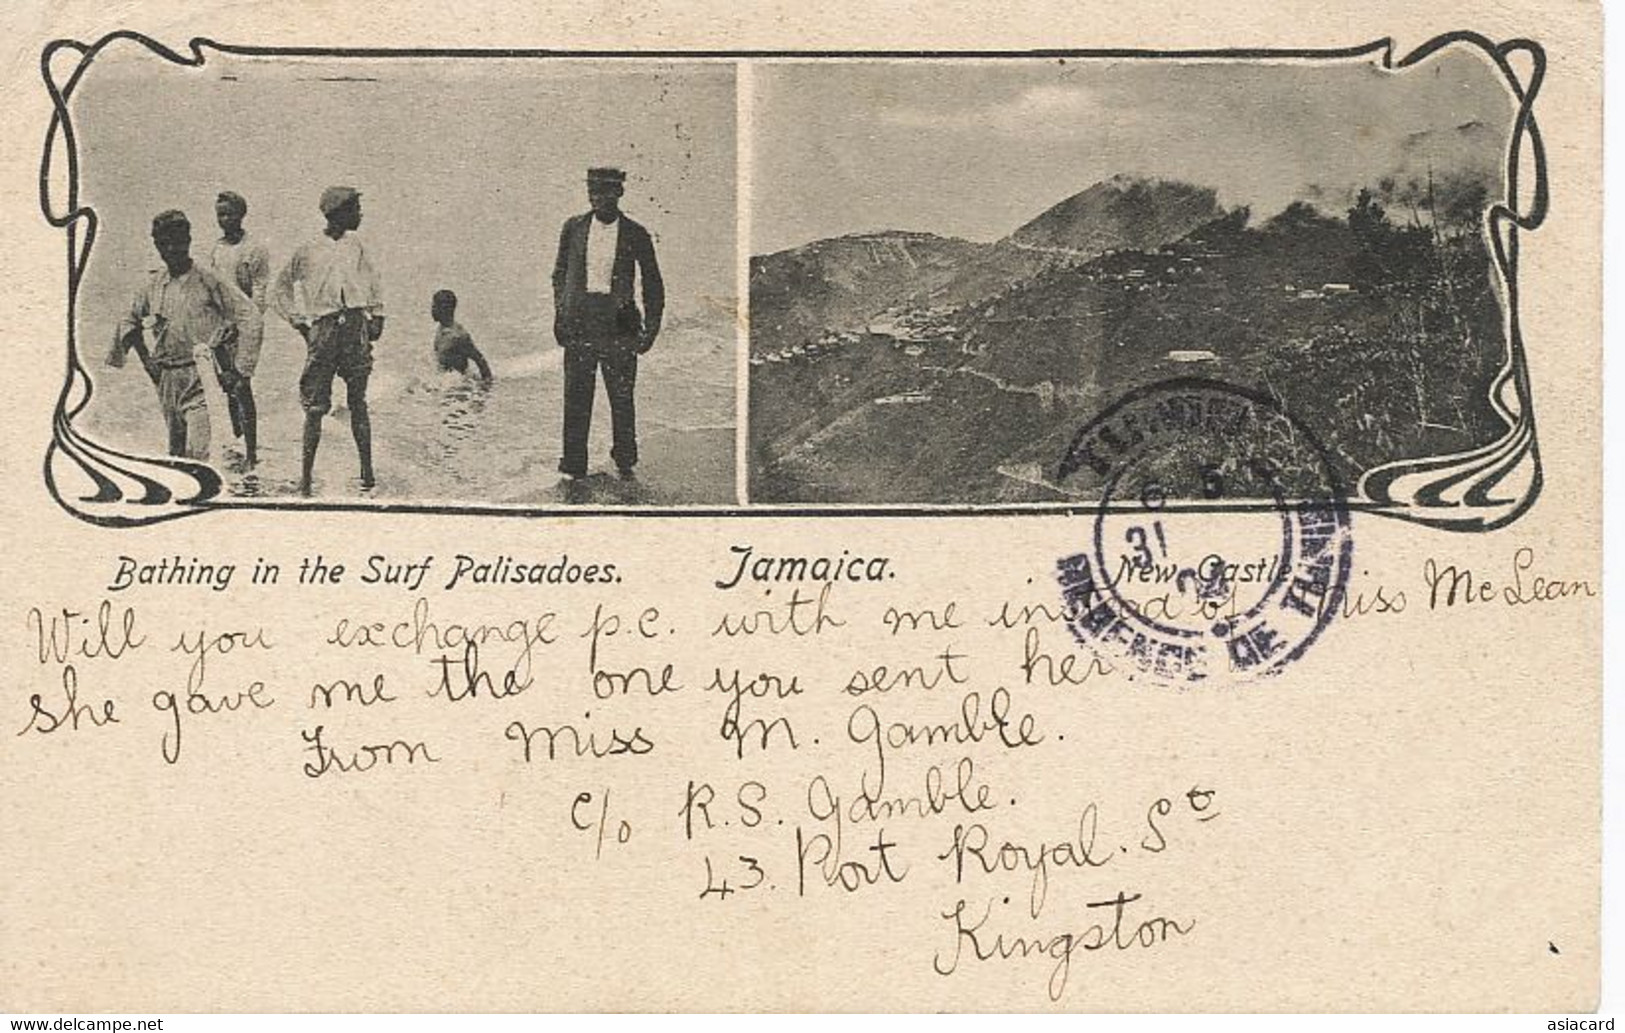 Bathing in the Surf Palisadoes. Jamaica. New Castle.
Will you exchange p.c. with me instead of Miss McLean
she gave me the one you sent her.
From Miss M. Gamble.
c/o R.S. Gamble.
43. Port Royal. St
Kingston
31
REGENCE DE TUNIS
delcampe.net
asiacard